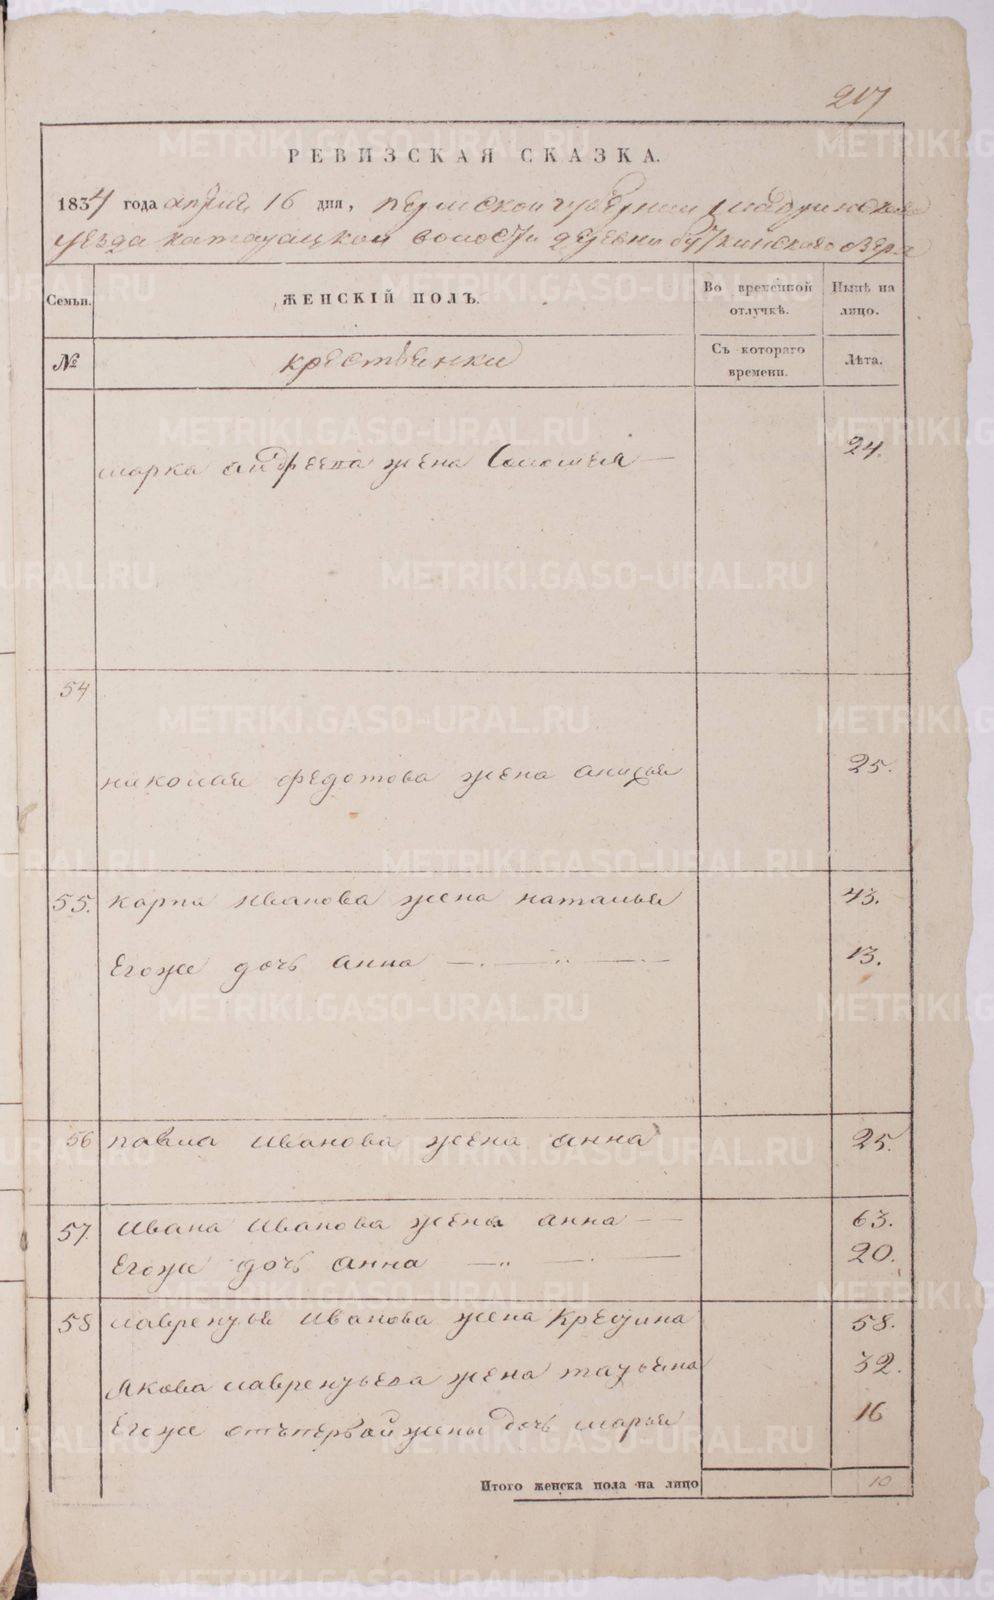 217
РЕВИЗСКАЯ СКАЗКА.
1834 года апреля 16 дня, пермской губернии шадринскаго
уезда катайцкой волости деревни буткинскаго озера
Семьи. ЖЕНСКІЙ ПОЛЪ. Во временной отлучкѣ. Нынѣ на лицо.
№ крестьянки Съ котораго времени. Лѣта.
марка андреева жена Соломея 24.
54
николая федотова жена анисья 25.
55. карпа иванова жена наталья 43.
Егоже дочь анна 13.
56 павла иванова жена анна 25.
57. ивана иванова жена анна 63.
Егоже дочь анна 20.
58 лаврентья иванова жена 58.
Якова лаврентьева жена татьяна 32.
Егоже отъпервой жены дочь марья 16
Итого женска пола на лицо 10
METRIKI.GASO-URAL.RU